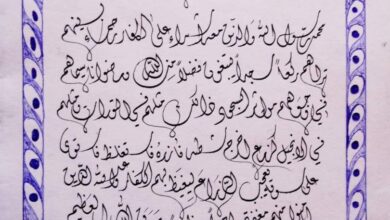 محمد رسول الله والذين معه اشداء على الكفار رحماء بينهم
تراهم ركعا سجدا يبتغون فضلا من الله ورضوانا سيماهم
في وجوههم من اثر السجود ذالك مثلهم في التوراة ومثلهم
في الانجيل كزرع اخرج شطه فازره فاستغلظ فاستوى
على سوقه يعجب الزراع ليغيظ بهم الكفار وعد الله الذين